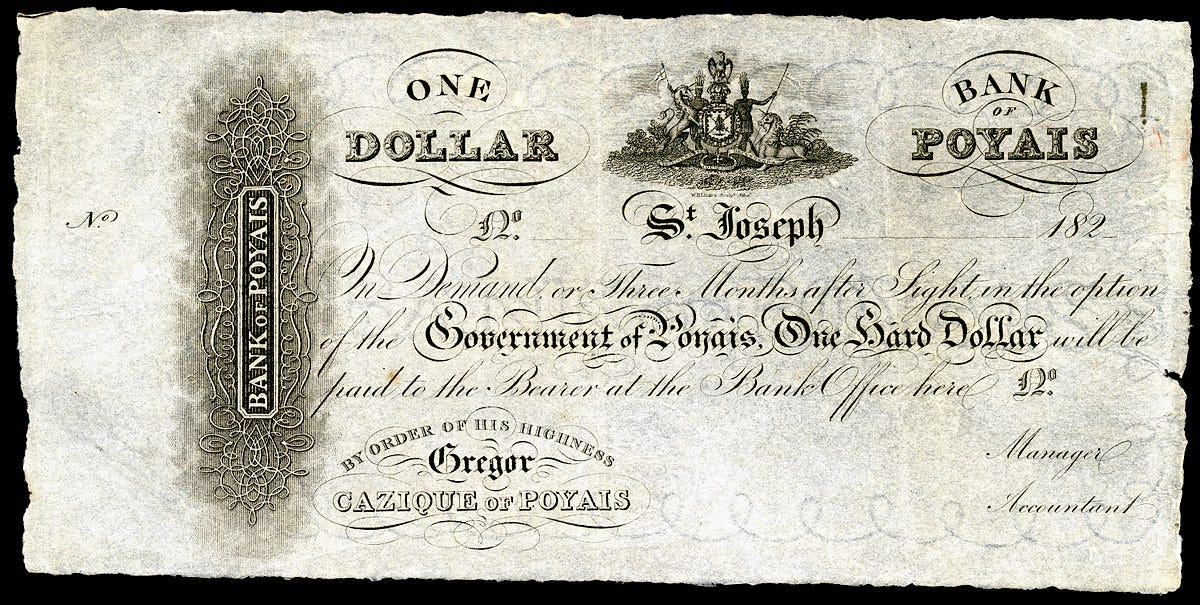 ONE
DOLLAR
BANK
OF
POYAIS
BANK OF POYAIS
No
No.
St. Joseph
182
On Demand, or Three Months after Sight, in the option
of the Government of Poyais, One Hard Dollar will be
paid to the Bearer at the Bank Office here No.
BY ORDER OF HIS HIGHNESS
Gregor
CAZIQUE OF POYAIS
Manager
Accountant